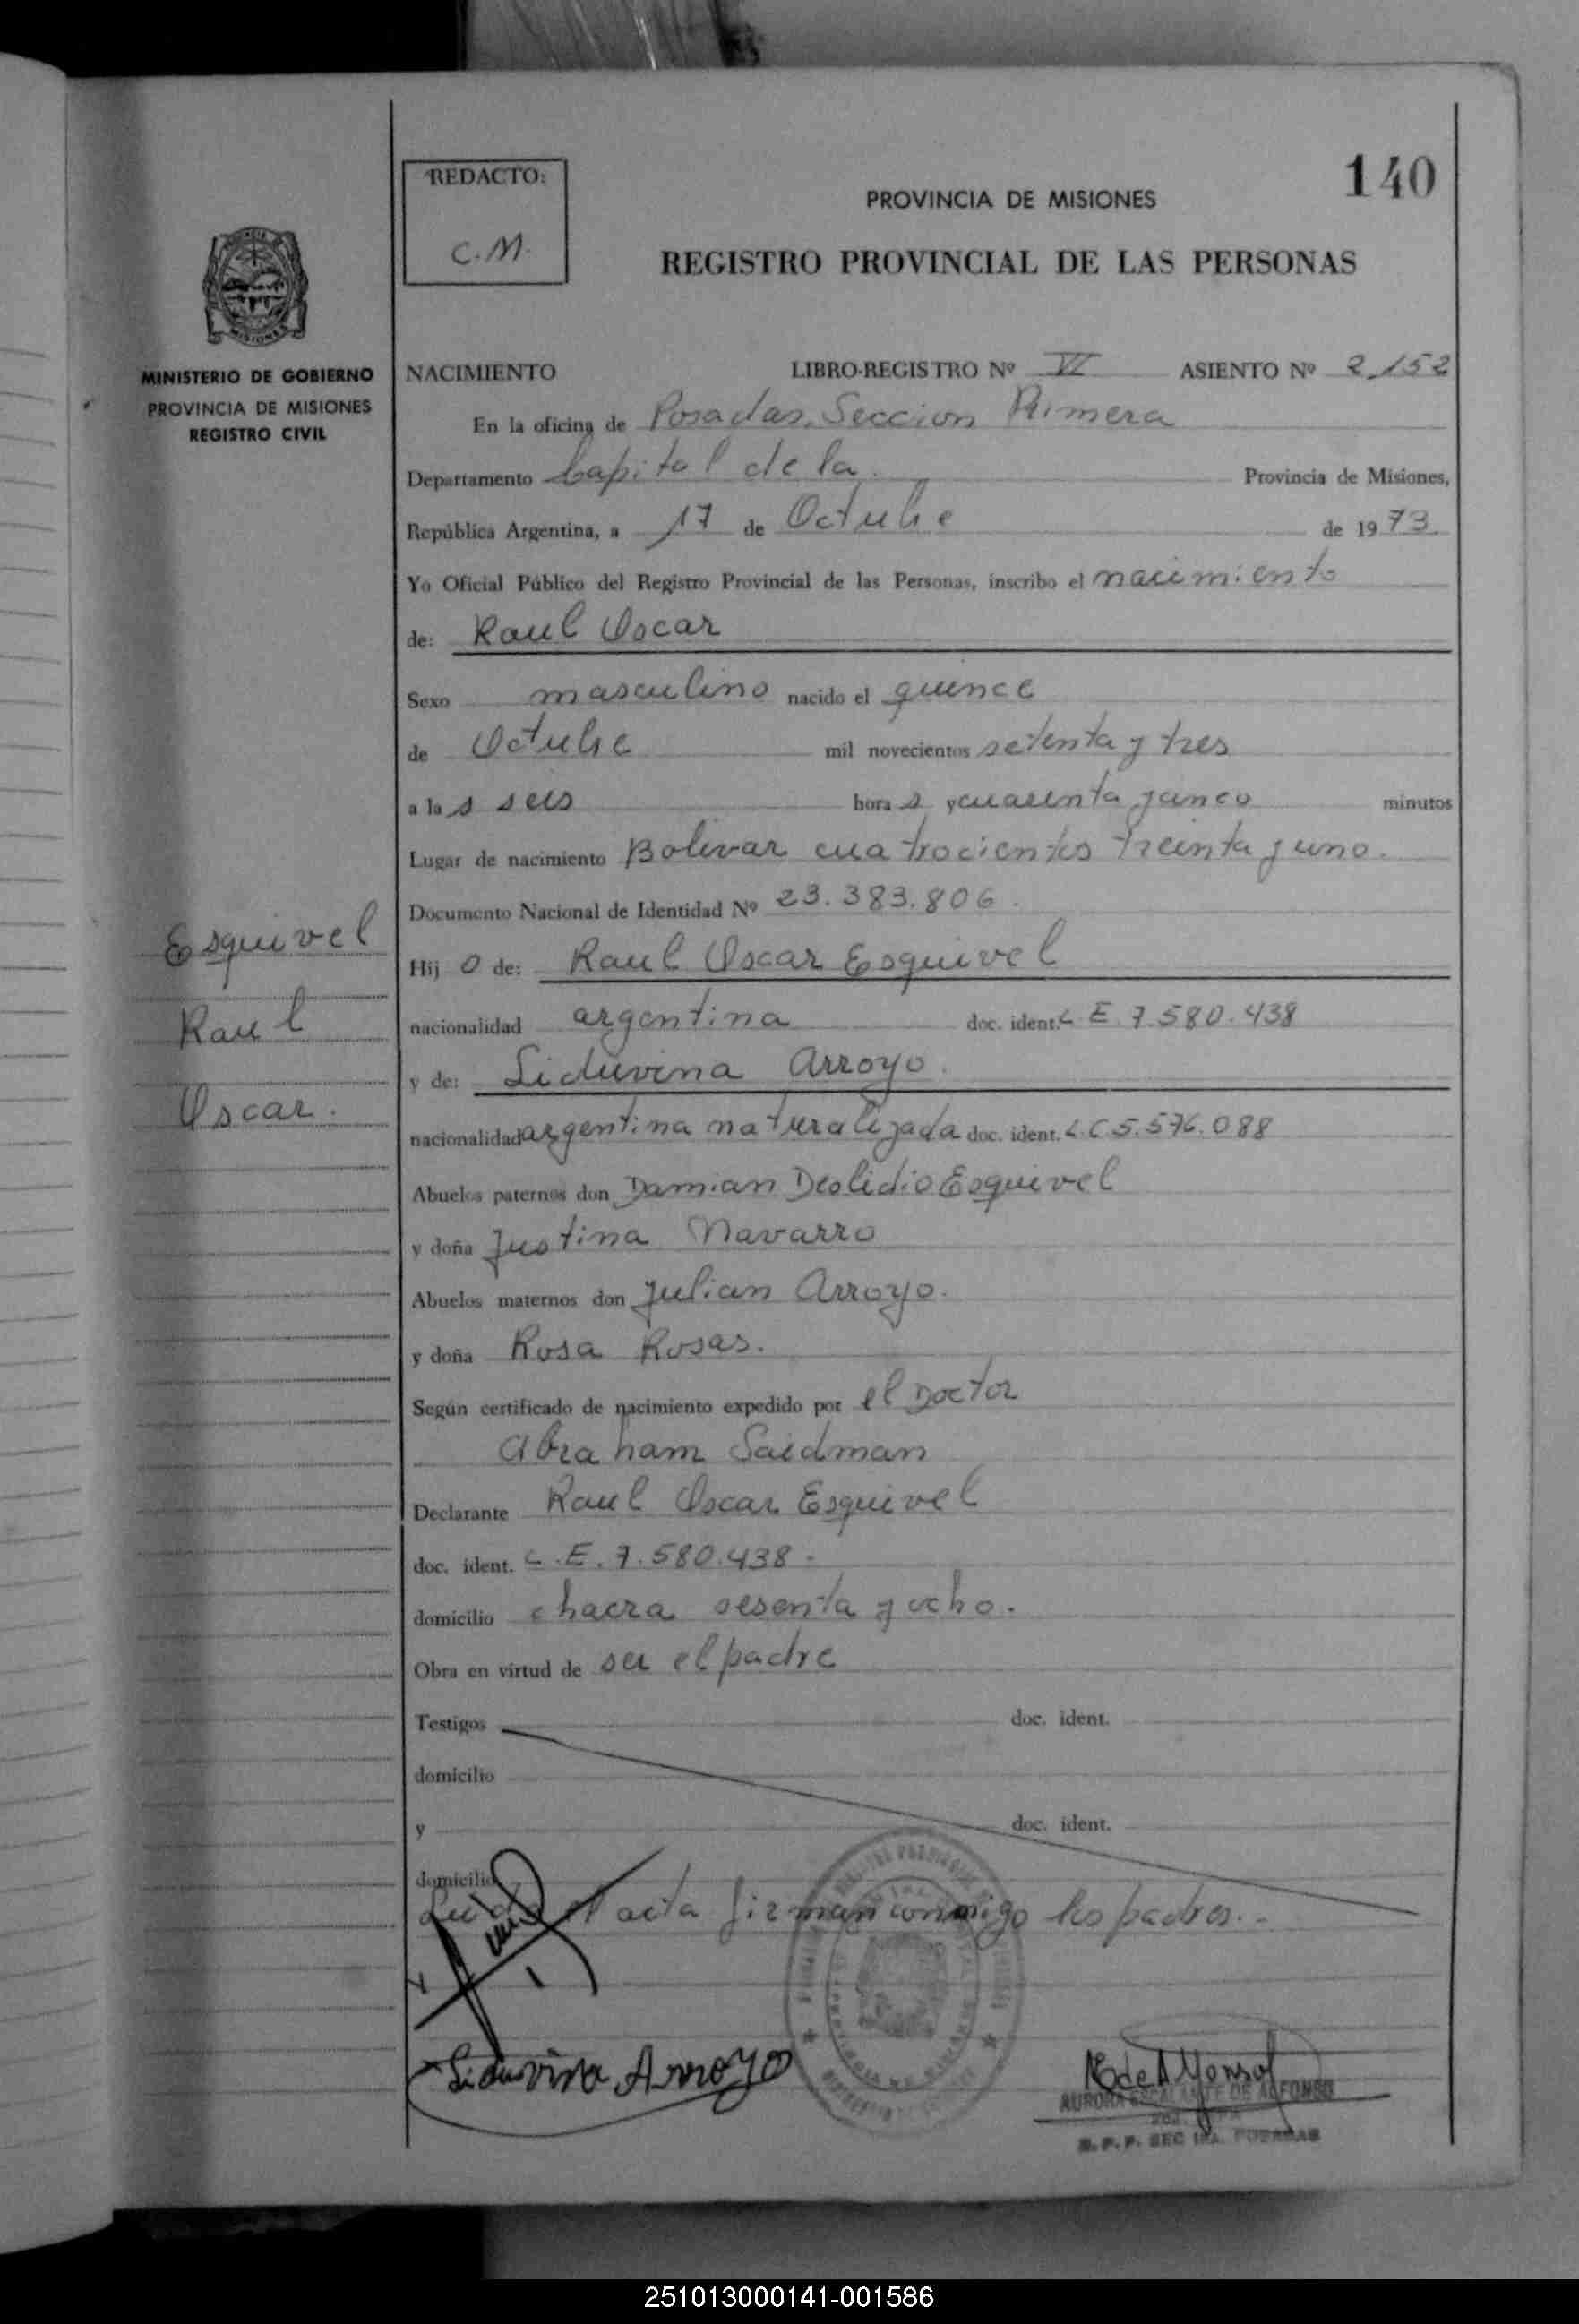 140
REDACTO:
C.M.
PROVINCIA DE MISIONES
REGISTRO PROVINCIAL DE LAS PERSONAS
MISIONES
MINISTERIO DE GOBIERNO
PROVINCIA DE MISIONES
REGISTRO CIVIL
NACIMIENTO LIBRO-REGISTRO Nº VI ASIENTO Nº 2.152
En la oficina de Posadas. Seccion Primera
Departamento Capital de la. Provincia de Misiones,
República Argentina, a 17 de Octubre de 1973.
Yo Oficial Público del Registro Provincial de las Personas, inscribo el nacimiento
de: Raul Oscar
Sexo masculino nacido el quince
de Octubre mil novecientos setenta y tres
a la s seis hora s y cuarenta y cinco minutos
Lugar de nacimiento Bolivar cuatrocientos treinta y uno.
Documento Nacional de Identidad Nº 23.383.806.
Esquivel
Raul
Oscar.
Hij o de: Raul Oscar Esquivel
nacionalidad argentina doc. ident. L.E. 7.580.438
y de: Liduvina Arroyo.
nacionalidad argentina naturalizada doc. ident. L.C 5.576.088
Abuelos paternos don Damian Deolidio Esquivel
y doña Justina Navarro
Abuelos maternos don Julian Arroyo.
y doña Rosa Rosas.
Según certificado de nacimiento expedido por el Doctor
Abraham Saidman
Declarante Raul Oscar Esquivel
doc. ident. L.E. 7.580.438.
domicilio chacra sesenta y ocho.
Obra en virtud de ser el padre
Testigos doc. ident.
domicilio
y doc. ident.
domicilio
Leida el acta firman conmigo los padres.-
Liduvina Arroyo
AURORA ESCALANTE DE ALFONSO
R.P.P. SEC 1RA. POSADAS
251013000141-001586